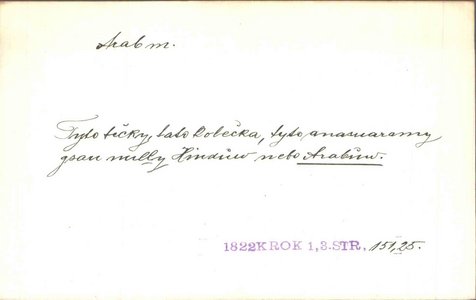 Arab m.
Tyto tečky, tato kolečka, tyto anaswaramy
gsau nully Hindůw nebo Arabůw.
1822KROK 1,3.STR, 151,25.